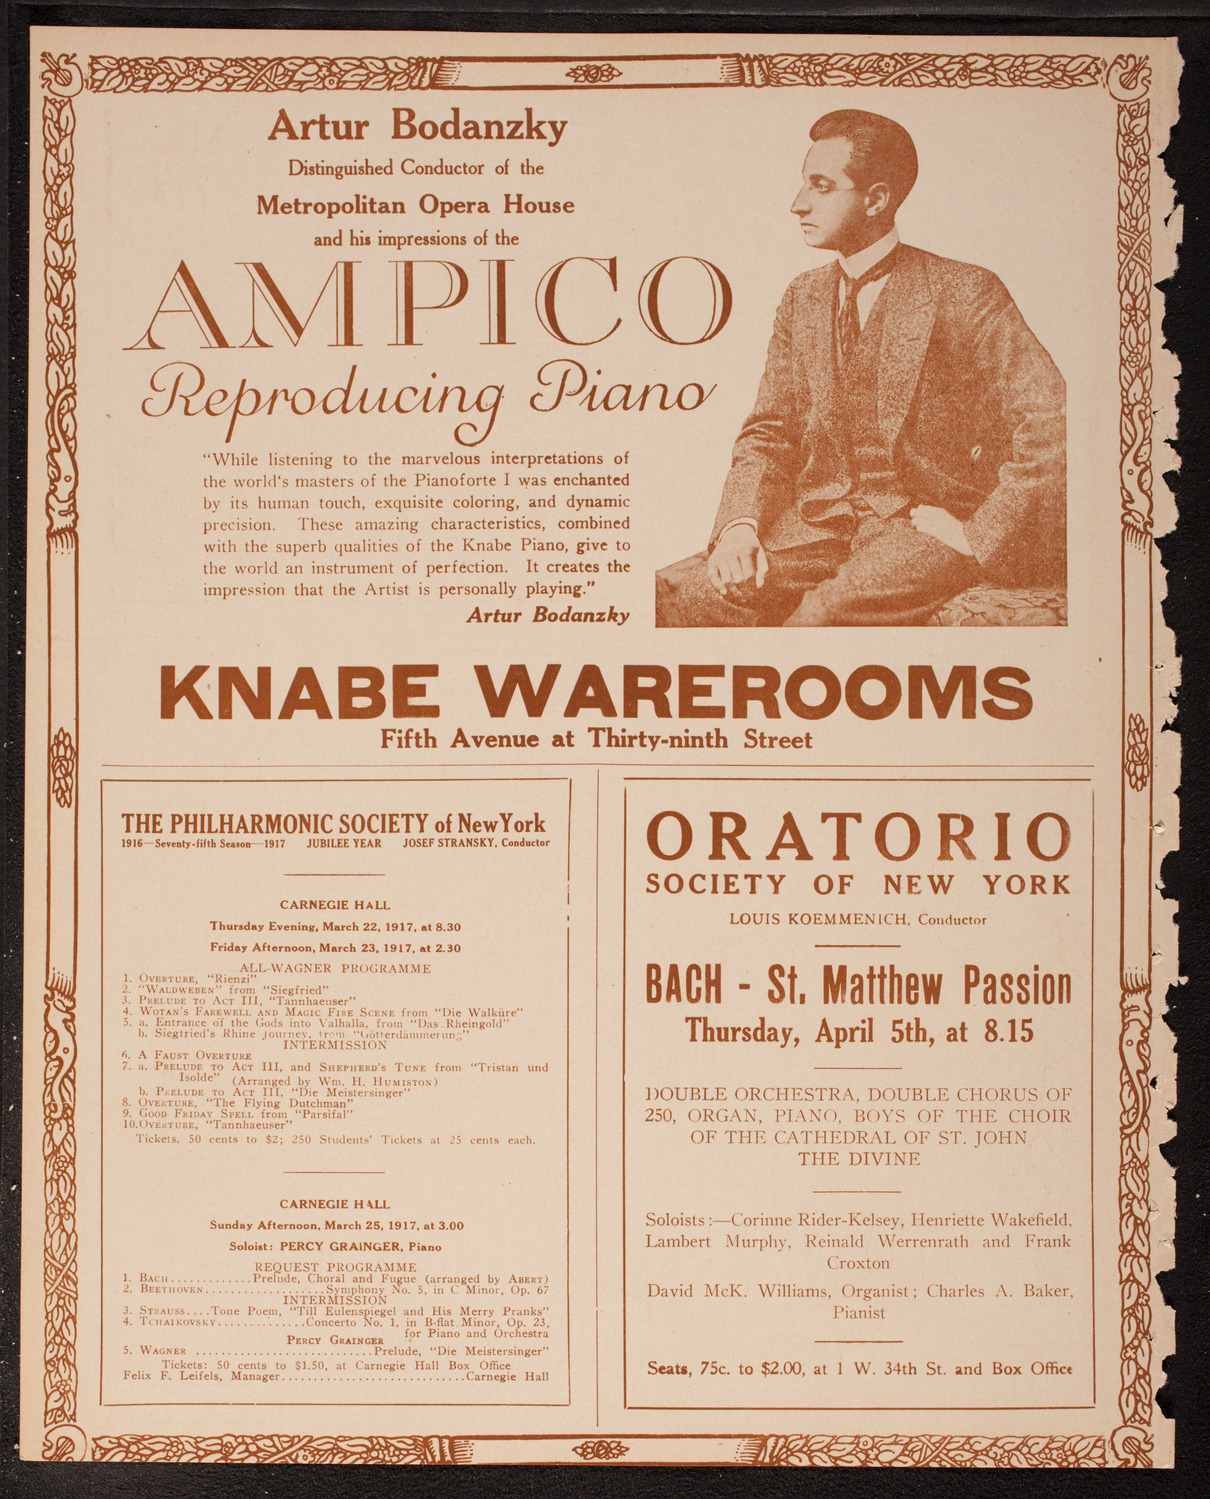 Artur Bodanzky
Distinguished Conductor of the
Metropolitan Opera House
and his impressions of the
AMPICO
Reproducing Piano
"While listening to the marvelous interpretations of
the world's masters of the Pianoforte I was enchanted
by its human touch, exquisite coloring, and dynamic
precision. These amazing characteristics, combined
with the superb qualities of the Knabe Piano, give to
the world an instrument of perfection. It creates the
impression that the Artist is personally playing."
Artur Bodanzky
KNABE WAREROOMS
Fifth Avenue at Thirty-ninth Street
THE PHILHARMONIC SOCIETY of New York
1916—Seventy-fifth Season—1917 JUBILEE YEAR JOSEF STRANSKY, Conductor
CARNEGIE HALL
Thursday Evening, March 22, 1917, at 8.30
Friday Afternoon, March 23, 1917, at 2.30
ALL-WAGNER PROGRAMME
1. OVERTURE, "Rienzi"
2. "WALDWEBEN" from "Siegfried"
3. PRELUDE TO ACT III, "Tannhaeuser"
4. WOTAN'S FAREWELL AND MAGIC FIRE SCENE from "Die Walküre"
5. a. Entrance of the Gods into Valhalla, from "Das Rheingold"
b. Siegfried's Rhine Journey, from "Götterdämmerung"
INTERMISSION
6. A FAUST OVERTURE
7. a. PRELUDE TO ACT III, and SHEPHERD'S TUNE from "Tristan und
Isolde" (Arranged by WM. H. HUMISTON)
b. PRELUDE TO ACT III, "Die Meistersinger"
8. OVERTURE, "The Flying Dutchman"
9. GOOD FRIDAY SPELL from "Parsifal"
10. OVERTURE, "Tannhaeuser"
Tickets, 50 cents to $2; 250 Students' Tickets at 25 cents each.
CARNEGIE HALL
Sunday Afternoon, March 25, 1917, at 3.00
Soloist: PERCY GRAINGER, Piano
REQUEST PROGRAMME
1. BACH............Prelude, Choral and Fugue (arranged by ABERT)
2. BEETHOVEN...................Symphony No. 5, in C Minor, Op. 67
INTERMISSION
3. STRAUSS....Tone Poem, "Till Eulenspiegel and His Merry Pranks"
4. TCHAIKOVSKY..............Concerto No. 1, in B-flat Minor, Op. 23,
for Piano and Orchestra
PERCY GRAINGER
5. WAGNER ...........................Prelude, "Die Meistersinger"
Tickets: 50 cents to $1.50, at Carnegie Hall Box Office
Felix F. Leifels, Manager............................Carnegie Hall
ORATORIO
SOCIETY OF NEW YORK
LOUIS KOEMMENICH, Conductor
BACH - St. Matthew Passion
Thursday, April 5th, at 8.15
DOUBLE ORCHESTRA, DOUBLE CHORUS OF
250, ORGAN, PIANO, BOYS OF THE CHOIR
OF THE CATHEDRAL OF ST. JOHN
THE DIVINE
Soloists:—Corinne Rider-Kelsey, Henriette Wakefield,
Lambert Murphy, Reinald Werrenrath and Frank
Croxton
David McK. Williams, Organist; Charles A. Baker,
Pianist
Seats, 75c. to $2.00, at 1 W. 34th St. and Box Office